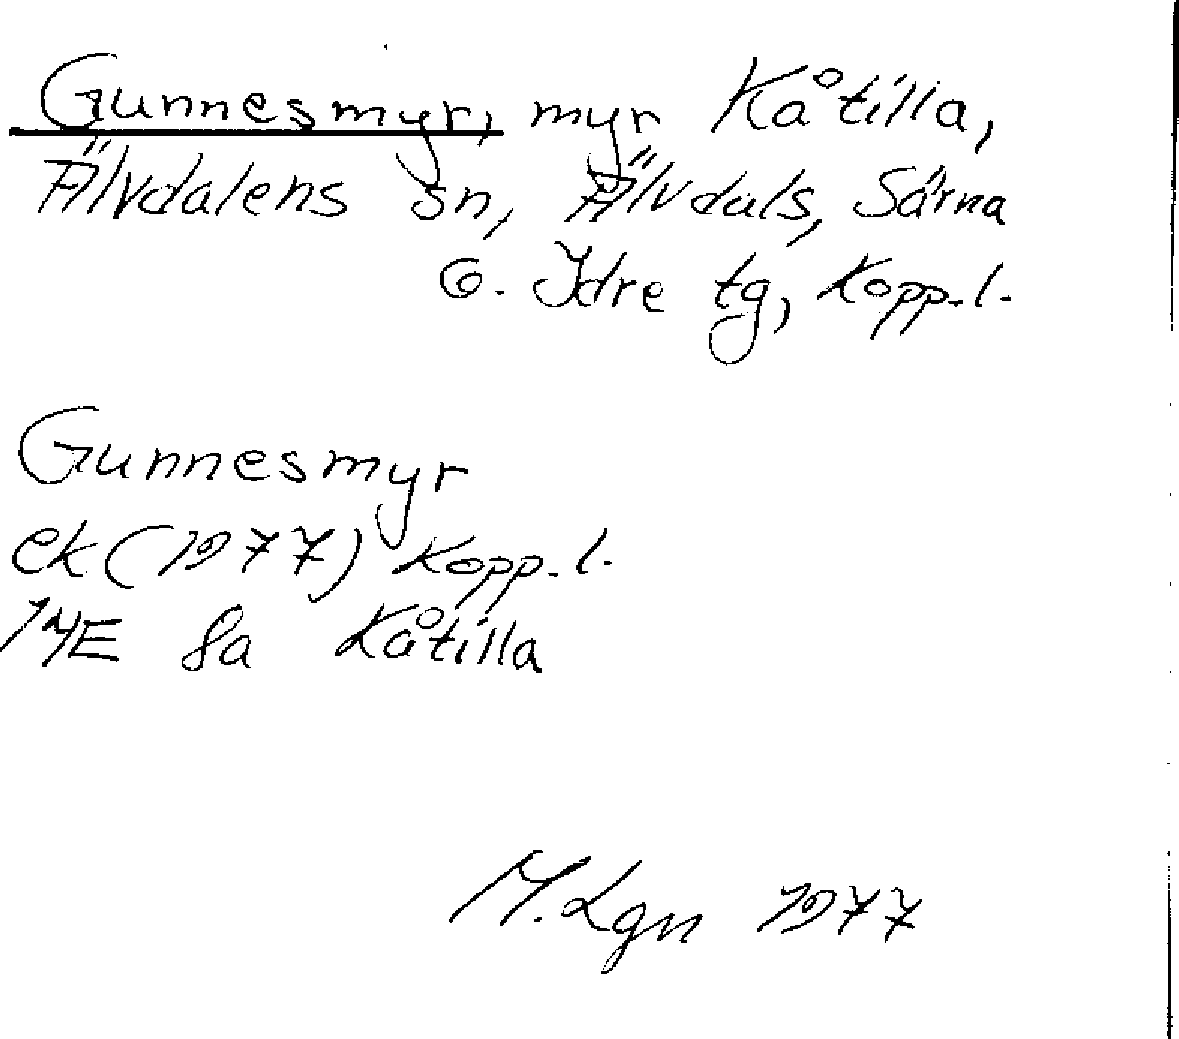 Gunnesmyr, myr Kåtilla,
Älvdalens sn, Älvdals, Särna
o. Idre tg, Kopp. l.
Gunnesmyr
ek (1977) Kopp. l.
14E 8a Kåtilla
M. Lgn 1977